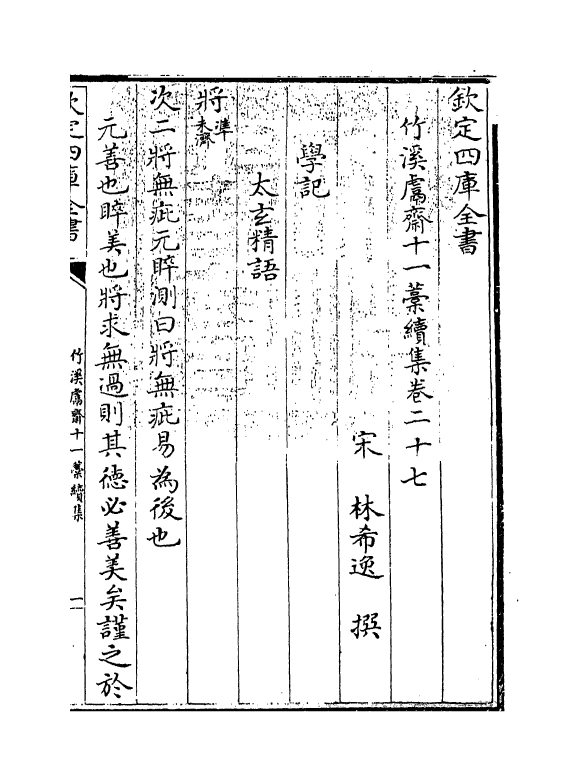 欽定四庫全書
竹溪鬳齋十一藁續集卷二十七
宋 林希逸 撰
學記
太玄精語
將準未濟
次二將無疵元睟測曰將無疵易為後也
元善也睟美也將求無過則其德必善美矣謹之於
欽定四庫全書
竹溪鬳齋十一藁續集
一